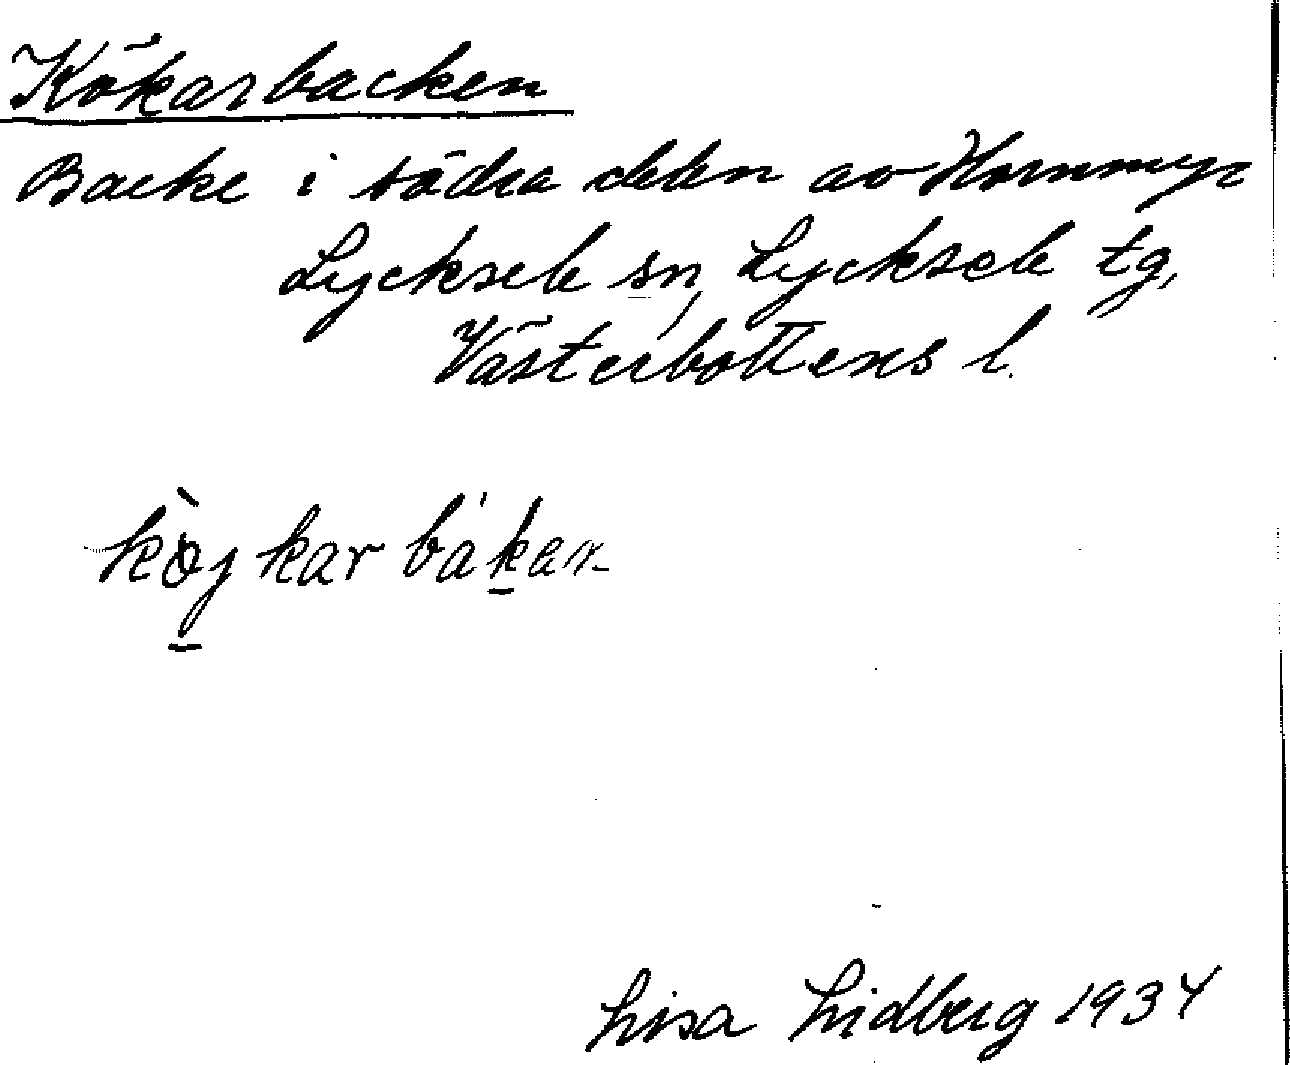 Kökarbacken
Backe i södra delen av Hornmyr
Lycksele sn, Lycksele tg,
Västerbottens l.
kö̀jkarbákan
Lisa Lidberg 1934